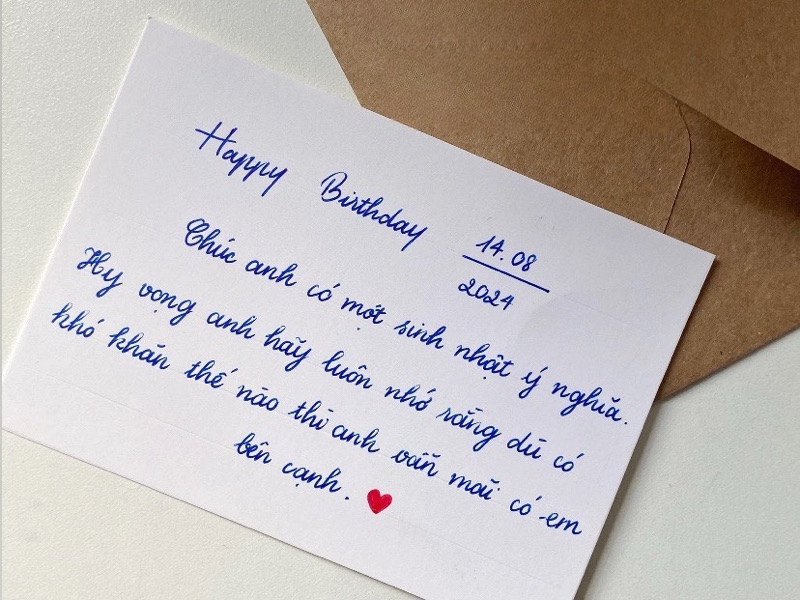 Happy Birthday 14.08
2024
Chúc anh có một sinh nhật ý nghĩa.
Hy vọng anh hãy luôn nhớ rằng dù có
khó khăn thế nào thì anh vẫn mãi có em
bên cạnh.